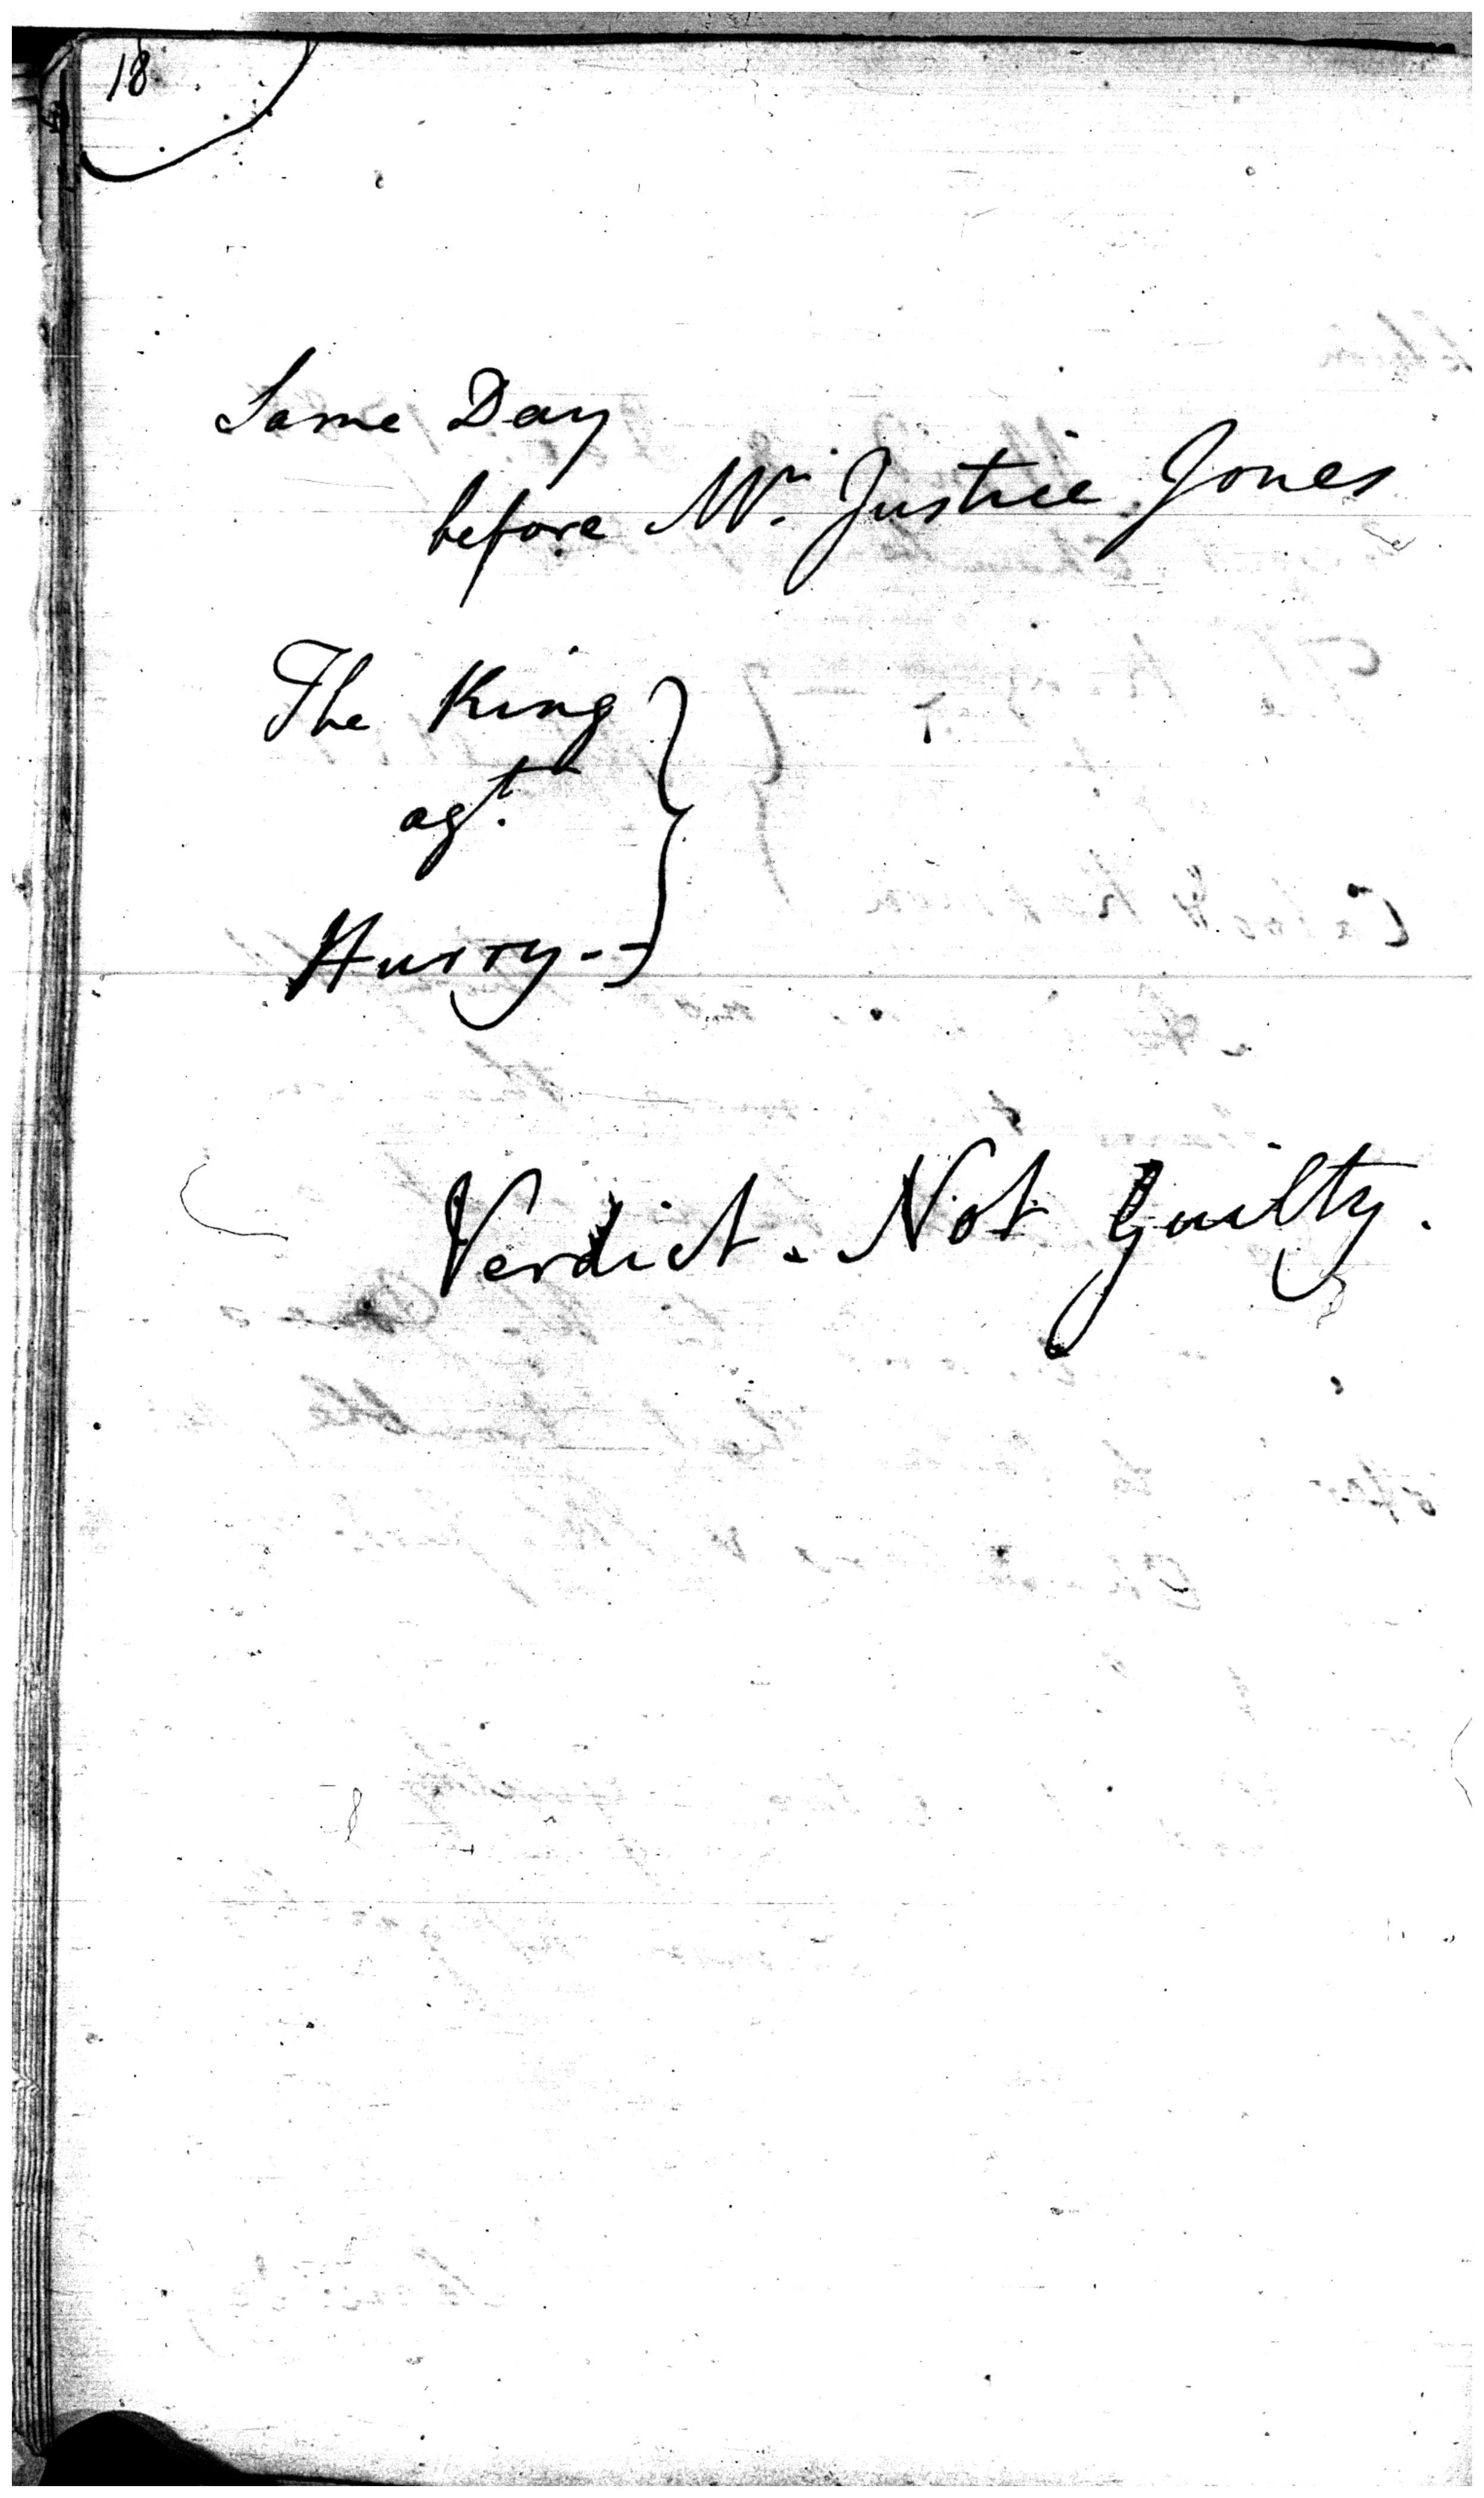 18
Same Day
before Mr. Justice Jones
The King
agt.
Hurry
Verdict. Not Guilty.